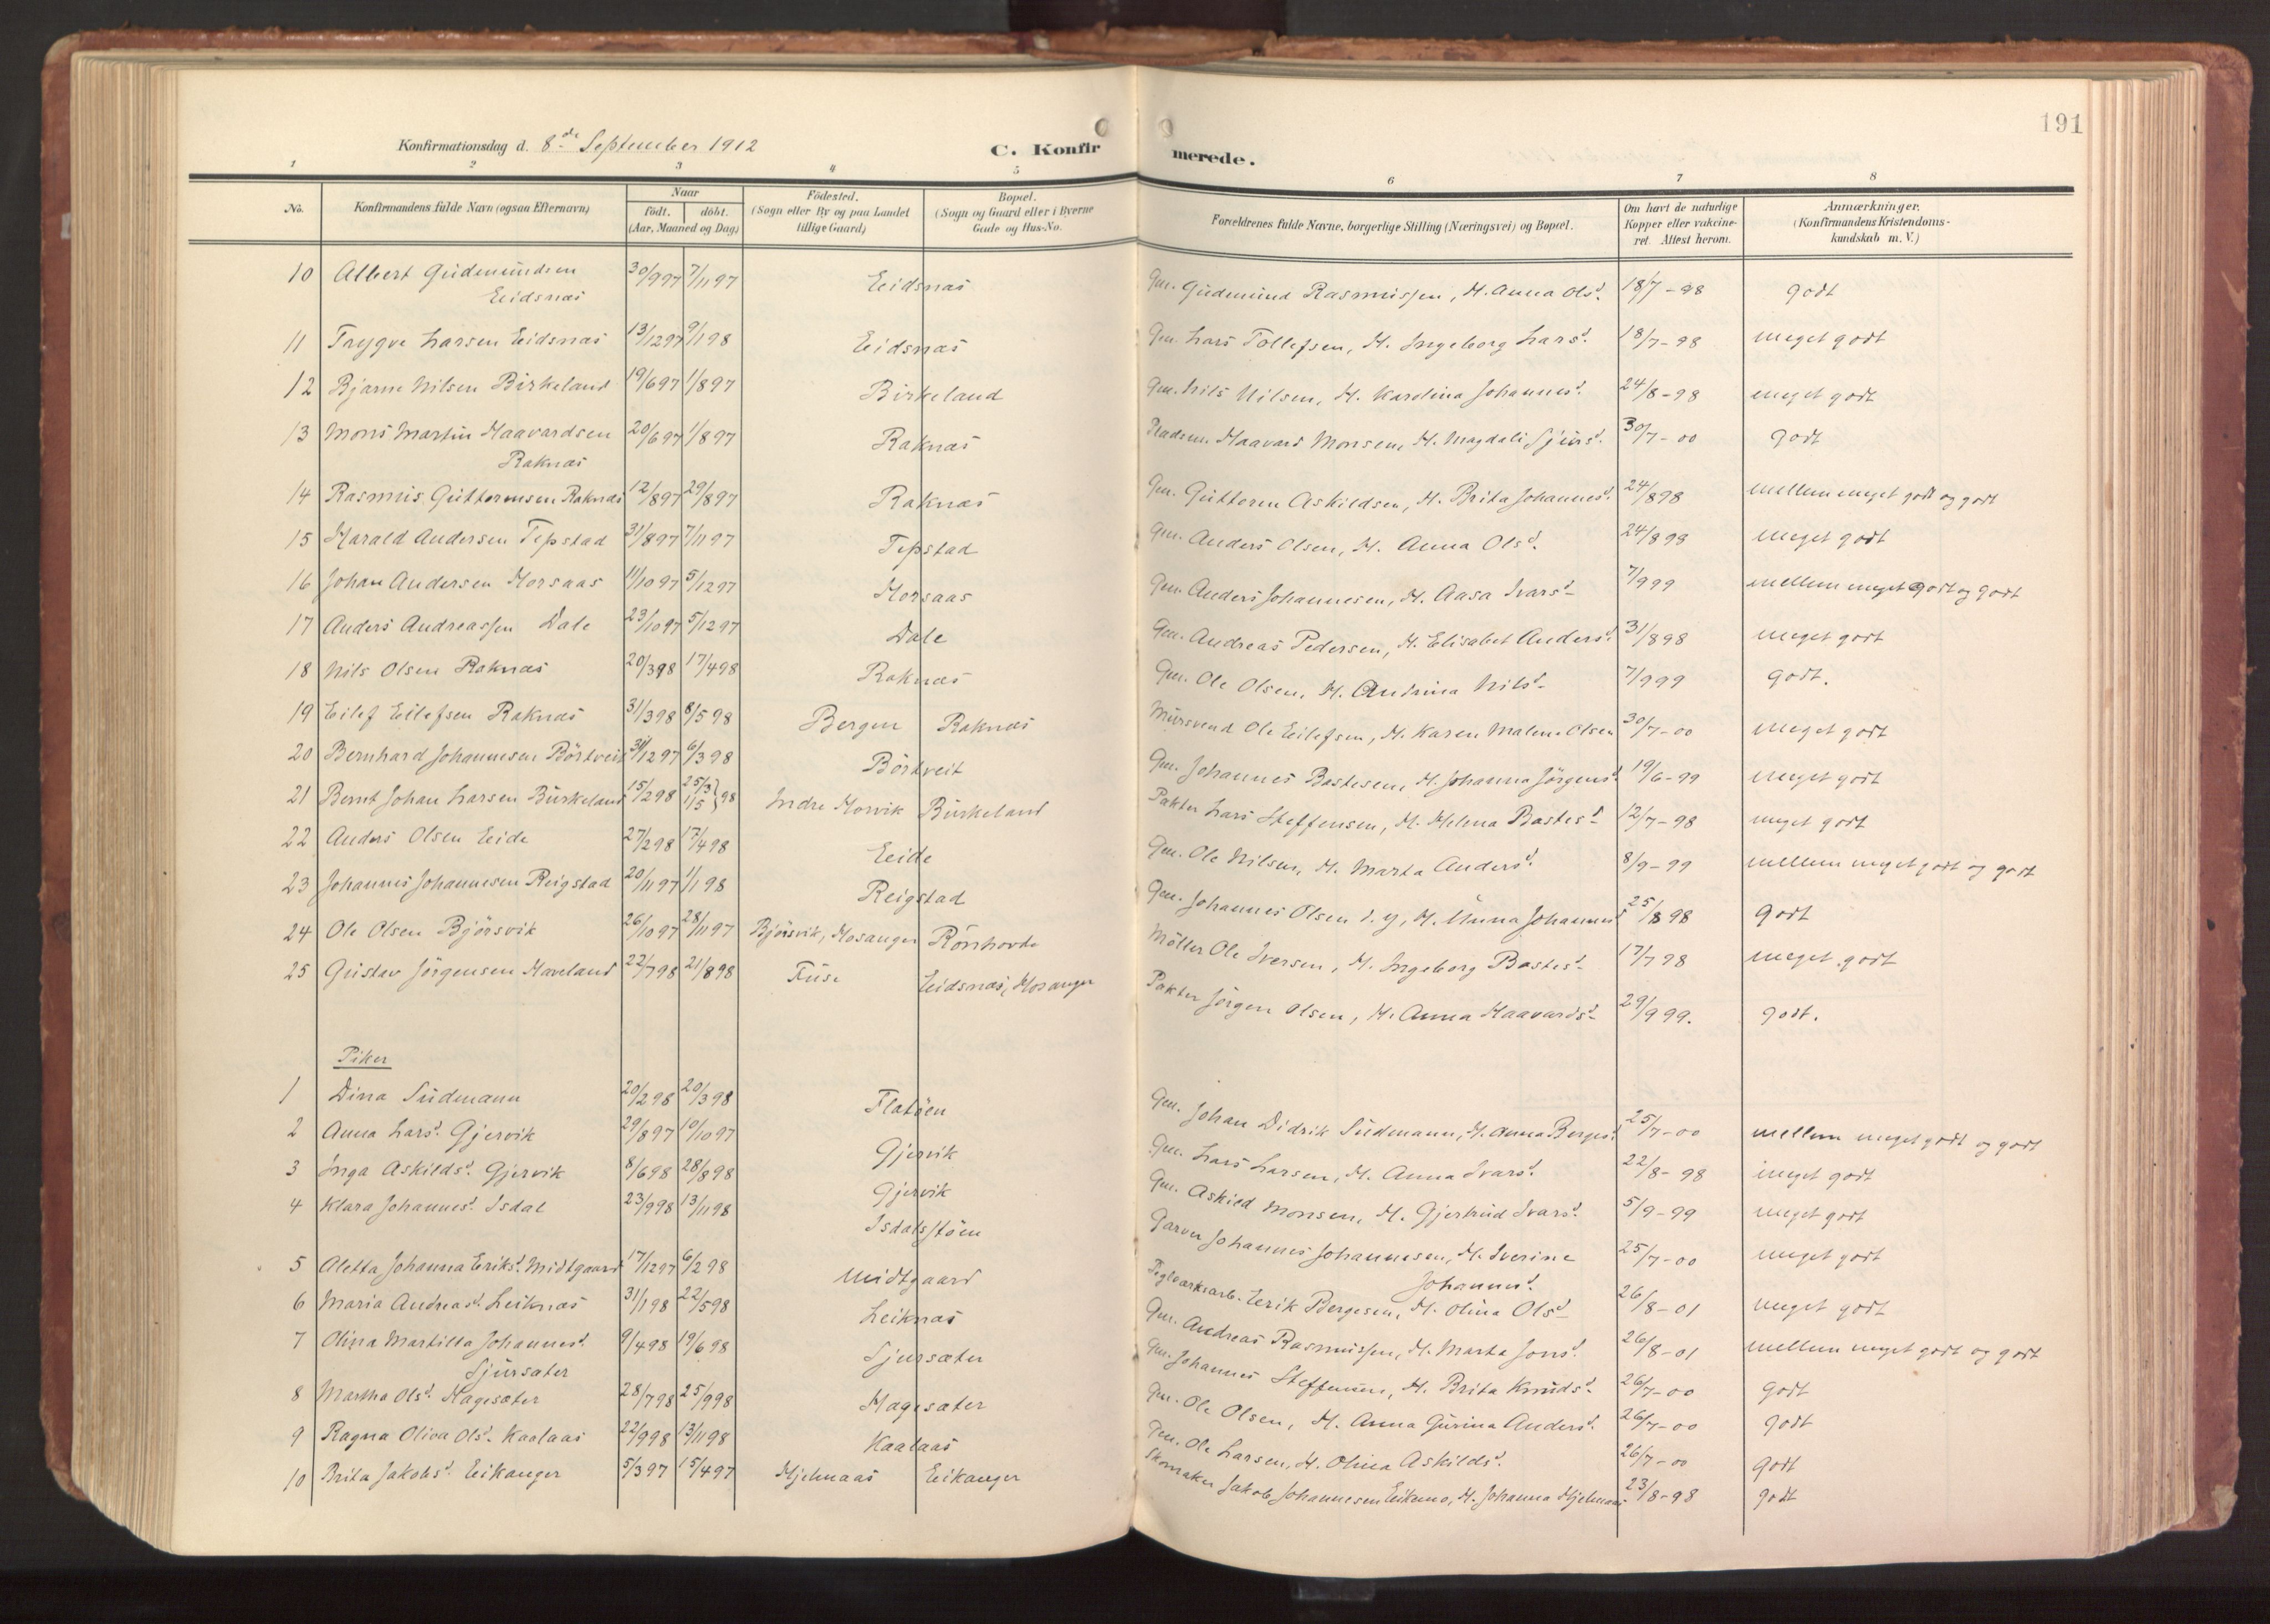 191
Konfirmationsdag d. 8de September 1912
C. Konfir merede.
1 2 3 4 5 6 7 8
No. Konfirmandens fulde Navn (ogsaa Efternavn) Naar födt. döbt. (Aar, Maaned og Dag) Födested. (Sogn eller By og paa Landet tillige Gaard) Bopæl. (Sogn og Gaard eller i Byerne Gade og Hus-No. Forældrenes fulde Navne, borgerlige Stilling (Næringsvei) og Bopæl. Om havt de naturlige Kopper eller vakcineret. Attest herom. Anmærkninger. (Konfirmandens Kristendomskundskab m. V.)
10 Albert Gudmundsen Eidsnæs 30/9 97 7/11 97 Eidsnæs Gm. Gudmund Rasmussen, H. Anna Olsd. 18/7-98 godt
11 Trygve Larsen Eidsnæs 13/12 97 9/1 98 Eidsnæs Gm. Lars Tollefsen, H. Ingeborg Larsd. 18/7-98 meget godt
12 Bjarne Nilsen Birkeland 19/6 97 1/8 97 Birkeland Gm. Nils Nilsen, H. Karolina Johannesd. 24/8-98 meget godt
13 Mons Martin Haavardsen Raknæs 20/6 97 1/8 97 Raknæs Pladsm. Haavard Monsen, H. Magdali Sjursd. 30/7-00 godt
14 Rasmus Guttormsen Raknæs 12/8 97 29/8 97 Raknæs Gm. Guttorm Askildsen, H. Brita Johannesd. 24/8 98 mellem meget godt og godt
15 Harald Andersen Tepstad 31/8 97 7/11 97 Tepstad Gm. Anders Olsen, H. Anna Olsd. 24/8 98 meget godt
16 Johan Andersen Horsaas 11/10 97 5/12 97 Horsaas Gm. Anders Johannesen, H. Aasa Ivarsd. 7/9 99 mellem meget godt og godt
17 Anders Andreassen Dale 23/10 97 5/12 97 Dale Gm. Andreas Pedersen, H. Elisabet Andersd. 31/8 98 meget godt
18 Nils Olsen Raknæs 20/3 98 17/4 98 Raknæs Gm. Ole Olsen, H. Andrina Nilsd. 7/9 99 godt.
19 Eilef Eilefsen Raknæs 31/3 98 8/5 98 Bergen Raknæs Mursvend Ole Eilefsen, H. Karen Malene Olsen 30/7-00 meget godt
20 Bernhard Johannesen Börtveit 31/12 97 6/3 98 Börtveit Gm. Johannes Bastesen, H. Johanna Jörgensd. 19/6-99 meget godt
21 Bernt Johan Larsen Birkeland 15/2 98 25/3 1/5 } 98 Indre Morvik Birkeland Pakter Lars Steffensen, H. Helena Bastesd. 12/7-98 meget godt
22 Anders Olsen Eide 27/2 98 17/4 98 Eide Gm. Ole Nilsen, H. Marta Andersd. 8/9-99 mellem meget godt og godt
23 Johannes Johannesen Reigstad 20/11 97 1/1 98 Reigstad Gm. Johannes Olsen d. y, H. Anna Johannesd. 25/8 98 godt
24 Ole Olsen Bjørsvik 26/10 97 28/11 97 Bjørsvik, Hosanger Rönhovde Möller Ole Iversen, H. Ingeborg Bastesd. 17/7 98 meget godt
25 Gustav Jörgensen Haveland 22/7 98 21/8 98 Fuse Eidsnæs, Hosanger Pakter Jörgen Olsen, H. Anna Haavardsd. 29/9 99. godt.
Piker
1 Dina Sudmann 20/2 98 20/3 98 Flatöen Gm. Johan Didrik Sudmann, H. Anna Bergesd. 25/7-00 mellem meget godt og godt
2 Anna Larsd. Gjervik 29/8 97 10/10 97 Gjervik Gm. Lars Larsen, H. Anna Ivarsd. 22/8-98 meget godt
3 Inga Askildsd. Gjervik 8/6 98 28/8 98 Gjervik Gm. Askild Monsen, H. Gjertrud Ivarsd. 5/9-99 meget godt
4 Klara Johannesd. Isdal 23/9 98 13/11 98 Isdalsstöen Garver Johannes Johannesen, H. Iverine Johannesd. 25/7-00 meget godt
5 Aletta Johanna Eriksd. Midtgaard 17/12 97 6/2 98 Midtgaard Teglverksarb. Eerik Bergesen, H. Olina Olsd. 26/8-01 meget godt
6 Maria Andreasd. Leiknæs 31/1 98 22/5 98 Leiknæs Gm. Andreas Rasmussen, H. Marta Jonsd. 26/8-01 mellem meget godt og godt
7 Olina Martilla Johannesd. Sjursæter 9/4 98 19/6 98 Sjursæter Gm. Johannes Steffensen, H. Brita Knudsd. 26/7-00 godt
8 Martha Olsd. Hagesæter 28/7 98 25/9 98 Hagesæter Gm. Ole Olsen, H. Anna Gurina Andersd. 26/7-00 godt
9 Ragna Oliva Olsd. Kaalaas 22/9 98 13/11 98 Kaalaas Gm. Ole Larsen, H. Olina Askildsd. 26/7-00 godt
10 Brita Jakobsd. Eikanger 5/3 97 15/4 97 Hjelmaas Eikanger Skomaker Jakob Johannesen Eikemo, H. Johanna Hjelmaas 23/8-98 godt